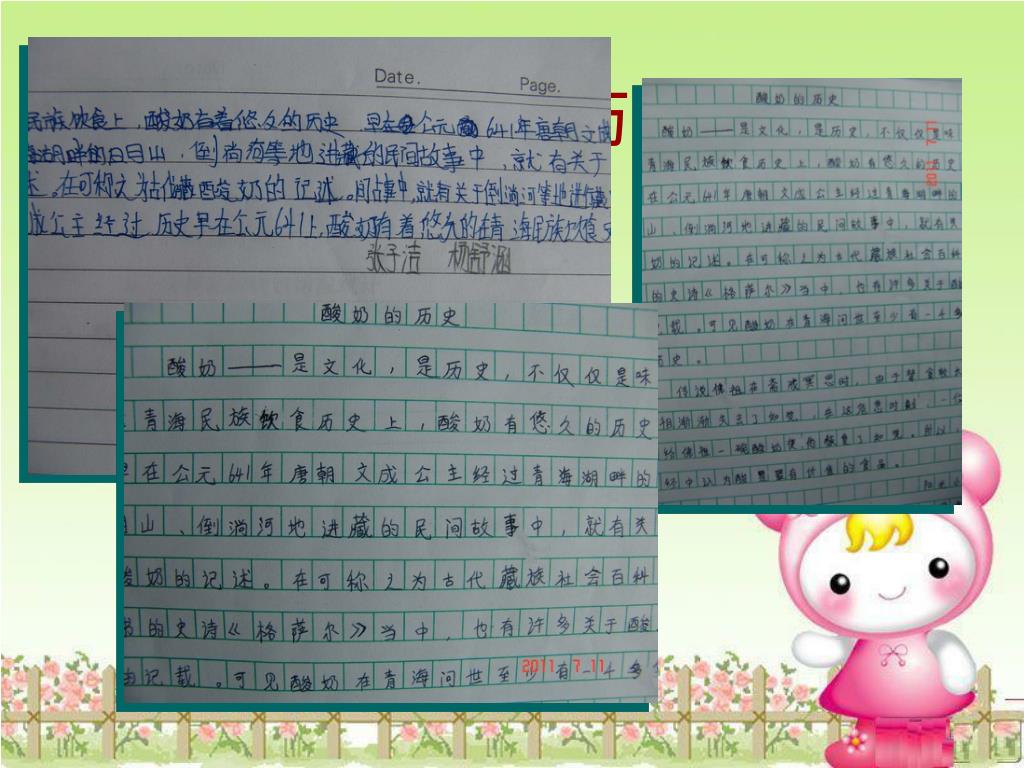 历
Date.
Page.
民族饮食上，酸奶有着悠久的历史 早在公元641年唐朝文成
湖畔的日月山，倒淌河等地进藏的民间故事中，就有关于
述。在可称之为古代藏酸奶的记述。间故事中，就有关于倒淌河等地进藏
成公主经过历史早在公元641上，酸奶有着悠久的在青海民族饮食
张子洁 杨舒涵
酸奶的历史
酸奶——是文化，是历史，不仅仅是味
青海民族饮食历史上，酸奶有悠久的历史
在公元641年唐朝文成公主经过青海湖畔的
山、倒淌河地进藏的民间故事中，就有关
酸奶的记述。在可称之为古代藏族社会百科
书的史诗《格萨尔》当中，也有许多关于酸
记载。可见酸奶在青海问世至少有一千多
2011 7 11
酸奶的历史
酸奶——是文化，是历史，不仅仅是味
青海民族饮食历史上，酸奶有悠久的历史
在公元641年唐朝文成公主经过青海湖畔的
山、倒淌河地进藏的民间故事中，就有关
奶的记述。在可称之为古代藏族社会百科
的史诗《格萨尔》当中，也有许多关于酸
载。可见酸奶在青海问世至少有一千多
历史。
传说佛祖在菩提冥思时，由于
祖渐渐失去了知觉，在这危急时刻，一位
给佛祖一碗酸奶使他恢复了知觉。所以，
经中认为酸奶是最有价值的食品。